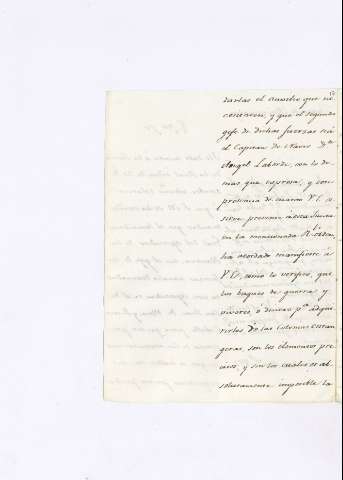 darlas el auxilio que ne
cesitaren, y que el segundo
gefe de dichas fuerzas sea
el Capitan de Navio Dn
Angel Laborde, con lo de
mas que espresa; y con
presencia de cuanto V.E. se
sirve
en la mencionada Rl. orden,
ha acordado manifieste á
V.E., como lo verifico, que
los buques de guerra y
viveres, ó dinero pa. adqui
rirlos de las Colonias estran
geras, son los elementos pre
cisos, y sin los cuales es ab
solutamente imposible la